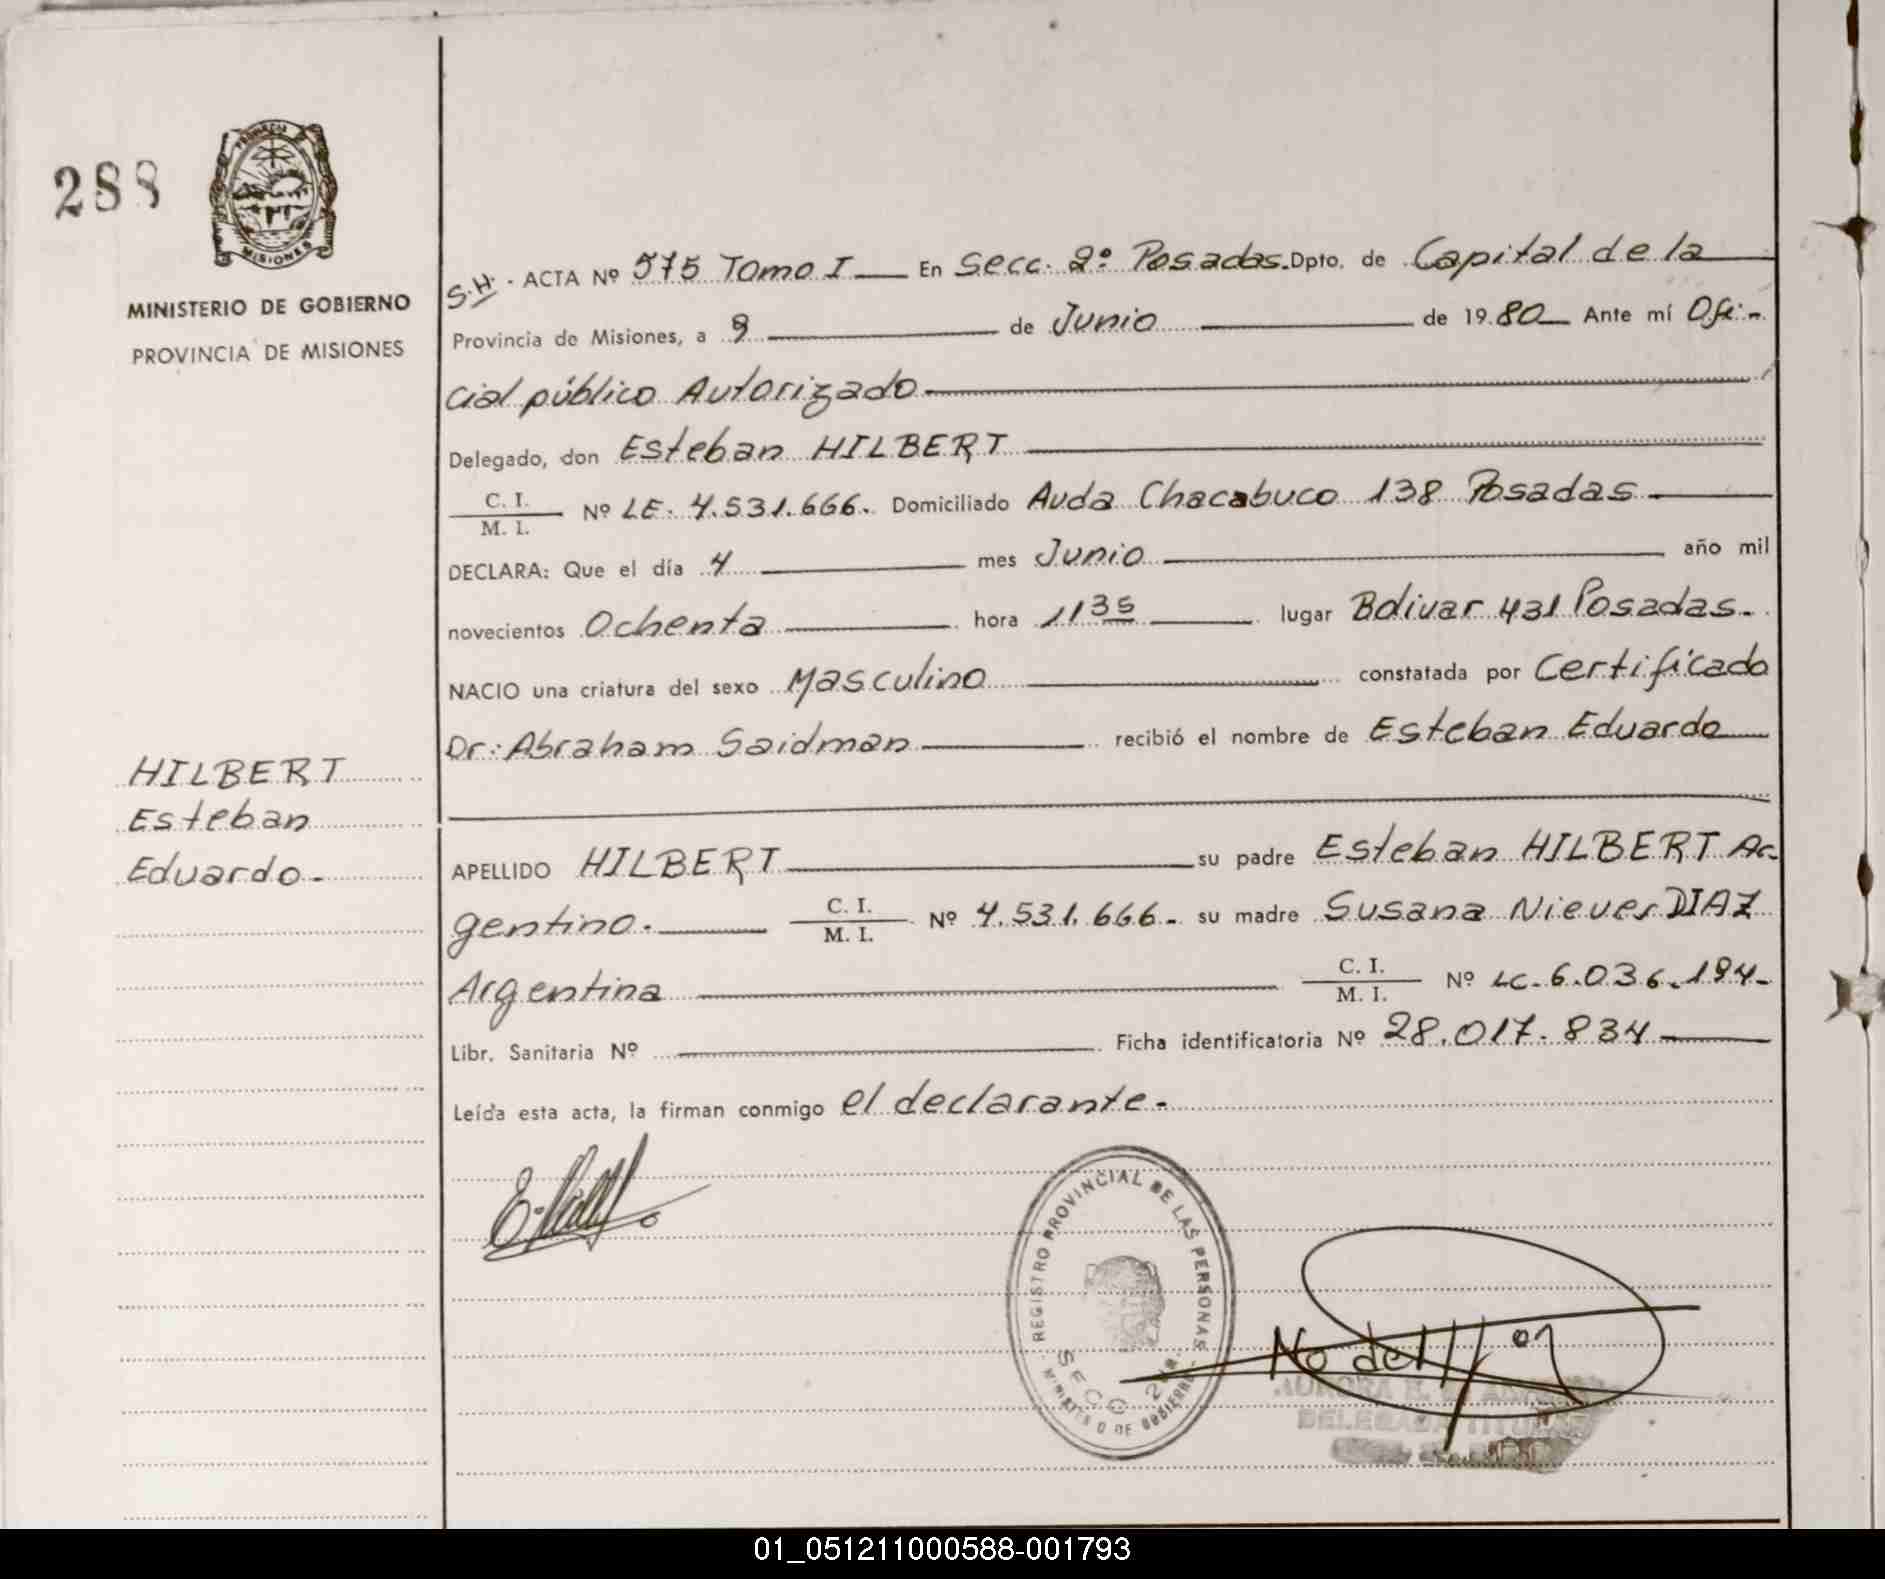 288
PROVINCIA
MISIONES
MINISTERIO DE GOBIERNO
PROVINCIA DE MISIONES
HILBERT
Esteban
Eduardo.-
S.H. - ACTA Nº 575 Tomo I En Secc. 2º Posadas. Dpto. de Capital de la
Provincia de Misiones, a 9 de Junio de 1980 Ante mí Ofi-
cial público Autorizado
Delegado, don Esteban HILBERT
C. I.
M. I. Nº LE. 4.531.666. Domiciliado Avda Chacabuco 138 Posadas
DECLARA: Que el día 4 mes Junio año mil
novecientos Ochenta hora 11 35 lugar Bolivar 431 Posadas.
NACIO una criatura del sexo Masculino constatada por Certificado
Dr: Abraham Saidman recibió el nombre de Esteban Eduardo
APELLIDO HILBERT su padre Esteban HILBERT Ar-
gentino. C. I.
M. I. Nº 4.531.666- su madre Susana Nieves DIAZ
Argentina C. I.
M. I. Nº LC. 6.036.194-
Libr. Sanitaria Nº Ficha identificatoria Nº 28.017.834
Leída esta acta, la firman conmigo el declarante.-
REGISTRO PROVINCIAL DE LAS PERSONAS
SECC 2
MINISTERIO DE GOBIERNO
AURORA
DELEGADA TITULAR
01_051211000588-001793